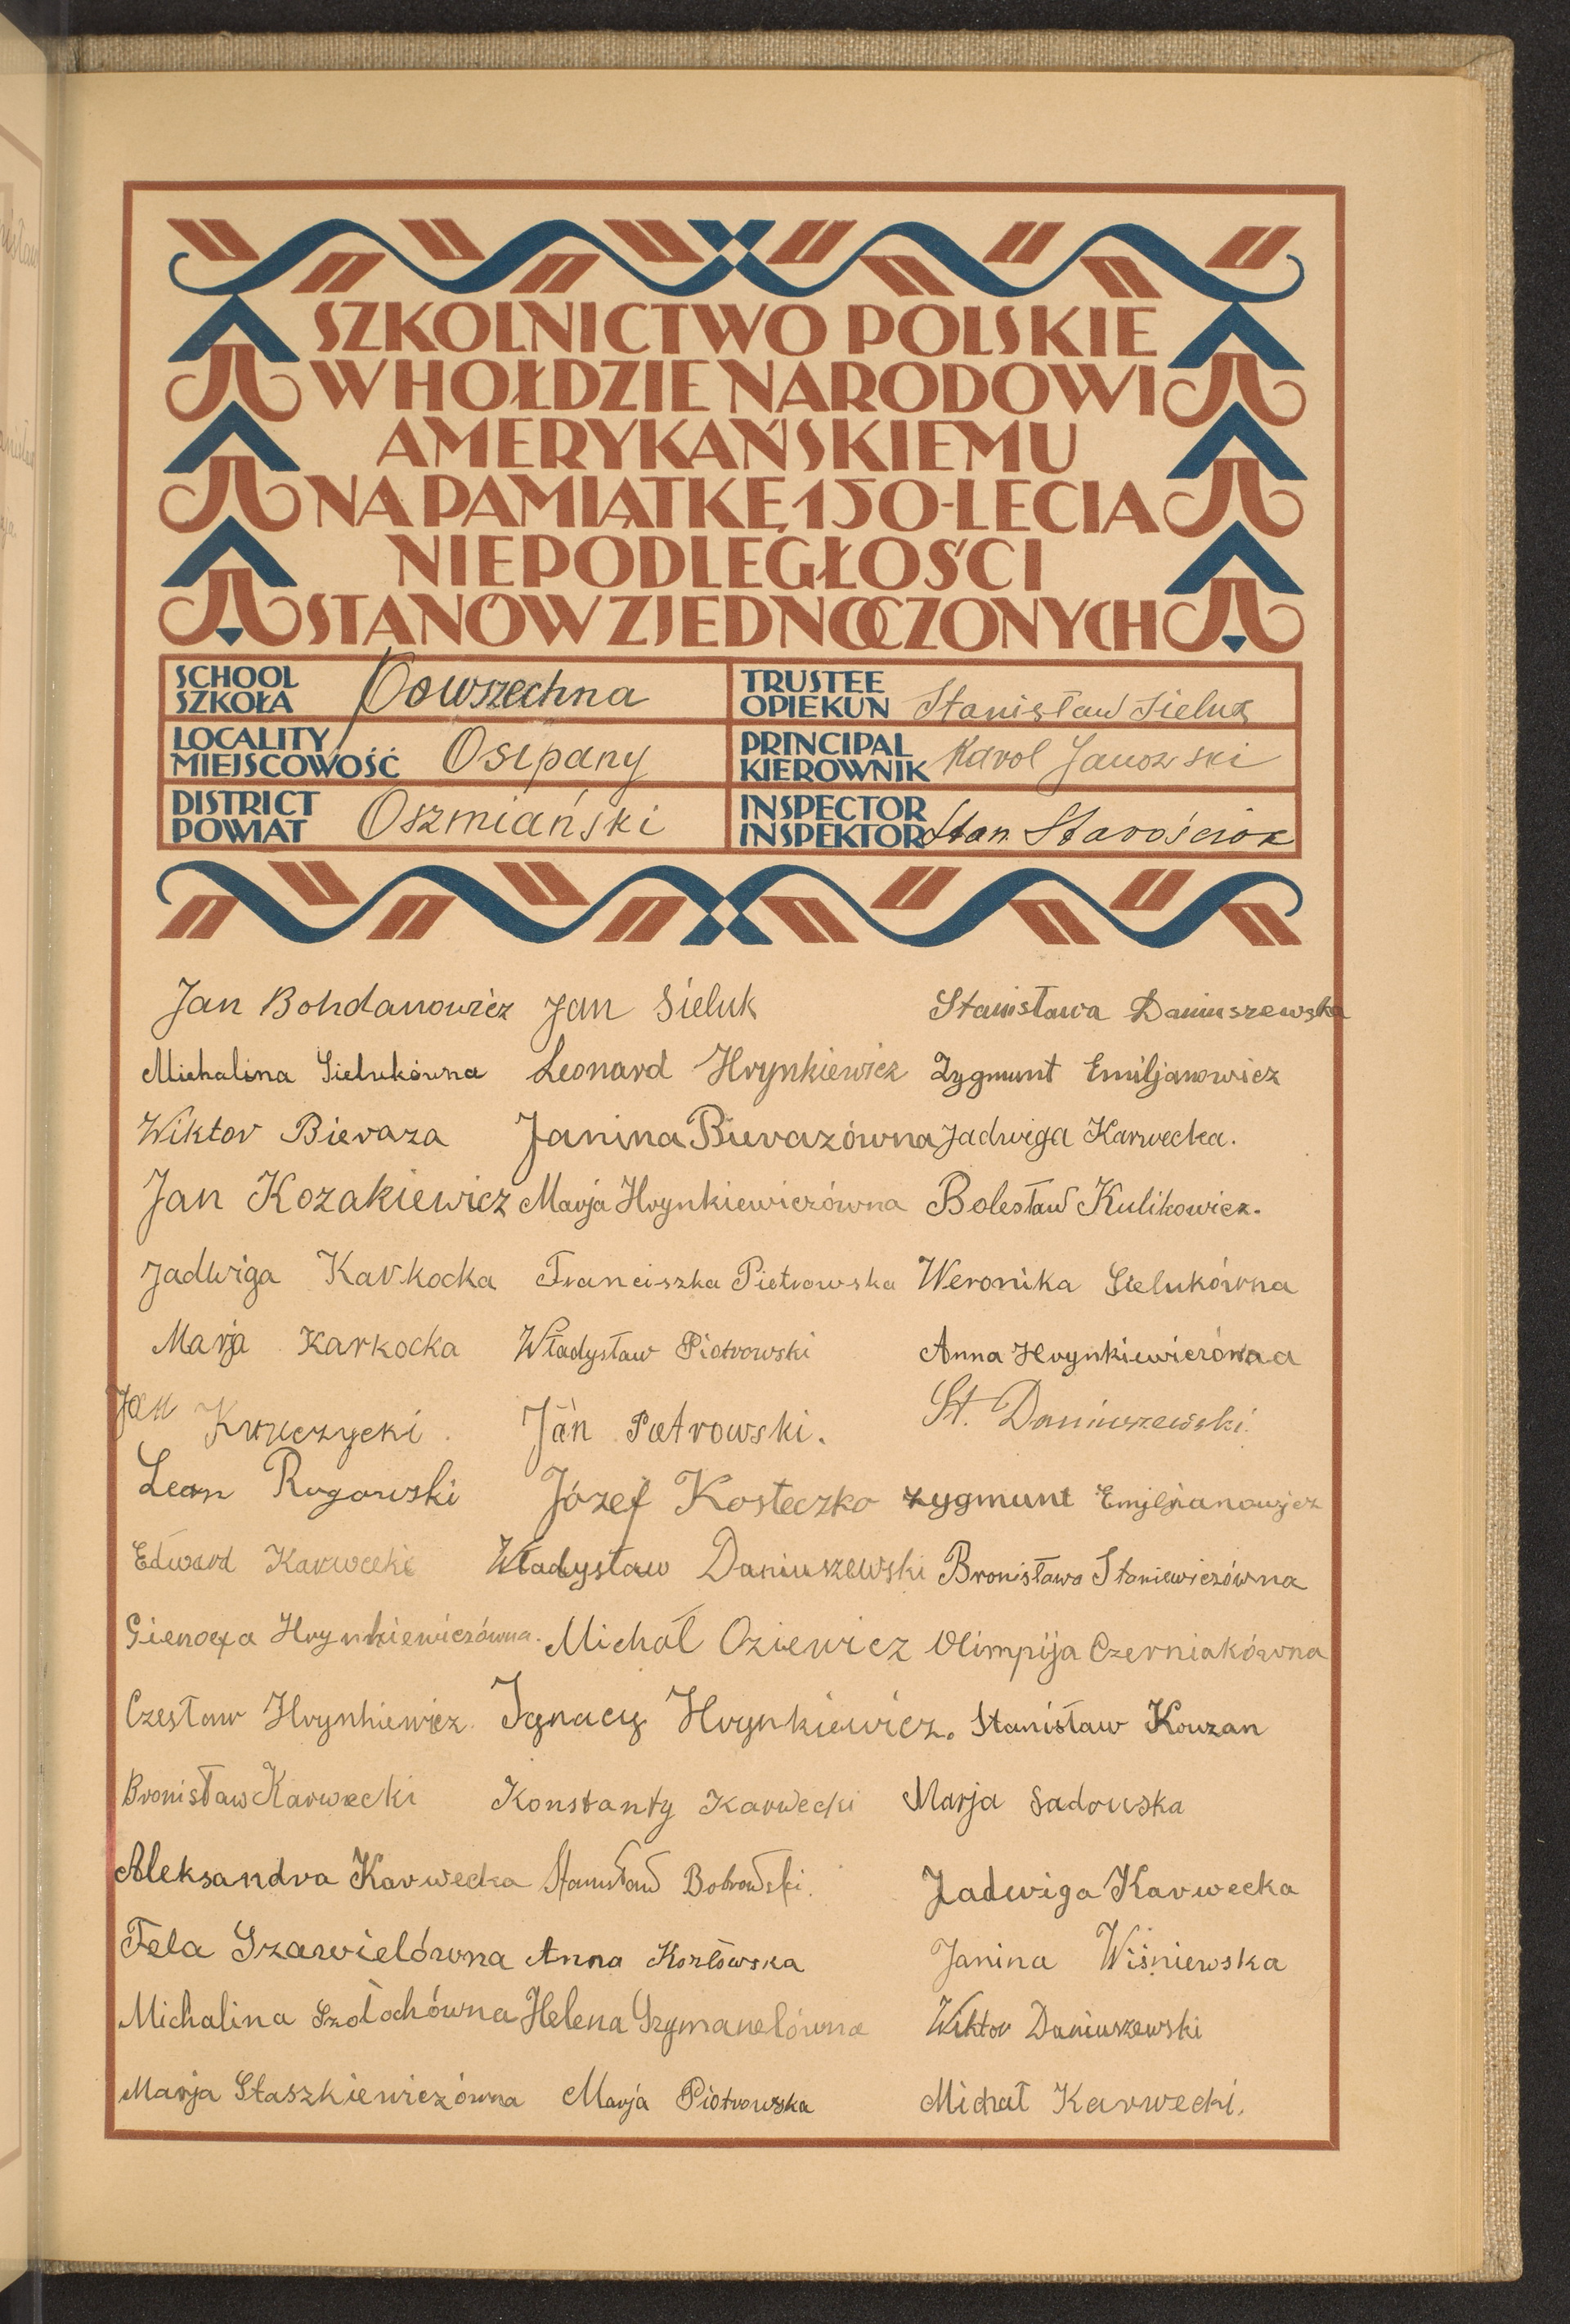 SZKOLNICTWO POLSKIE
W HOŁDZIE NARODOWI
AMERYKAŃSKIEMU
NA PAMIĄTKĘ 150-LECIA
NIEPODLEGŁOŚCI
STANÓW ZJEDNOCZONYCH
SCHOOL
SZKOŁA Powszechna
TRUSTEE
OPIEKUN Stanisław Sieluk
LOCALITY
MIEJSCOWOŚĆ Osipany
PRINCIPAL
KIEROWNIK Karol Janowski
DISTRICT
POWIAT Oszmiański
INSPECTOR
INSPEKTOR Stan. Starościak
Jan Bohdanowicz Jan Sieluk Stanisława Daniuszewska
Michalina Sielukówna Leonard Hrynkiewicz Zygmunt Emiljanowicz
Wiktor Bieraza Janina Bierazówna Jadwiga Karwecka.
Jan Kozakiewicz Marja Hrynkiewiczówna Bolesław Kulikowicz.
Jadwiga Karkocka Franciszka Pietrowska Weronika Sielukówna
Marja Karkocka Władysław Piotrowski Anna Hrynkiewiczówna
Jan Kruczycki. Jan Piotrowski. St. Daniuszewski.
Leon Rogowski Józef Kosteczko Zygmunt Emiljanowicz
Edward Karwecki Władysław Daniuszewski Bronisława Staniewiczówna
Gienoefa Hrynkiewiczówna. Michał Oziewicz Olimpija Czerniakówna
Czesław Hrynkiewicz. Ignacy Hrynkiewicz. Stanisław Kowzan
Bronisław Karwecki Konstanty Karwecki Marja Sadowska
Aleksandra Karwecka Stanisław Bobrowski. Jadwiga Karwecka
Fela Szawielówna Anna Kozłowska Janina Wiśniewska
Michalina Szołochówna Helena Szymanelówna Wiktor Daniuszewski
Marja Staszkiewiczówna Marja Piotrowska Michał Karwecki.